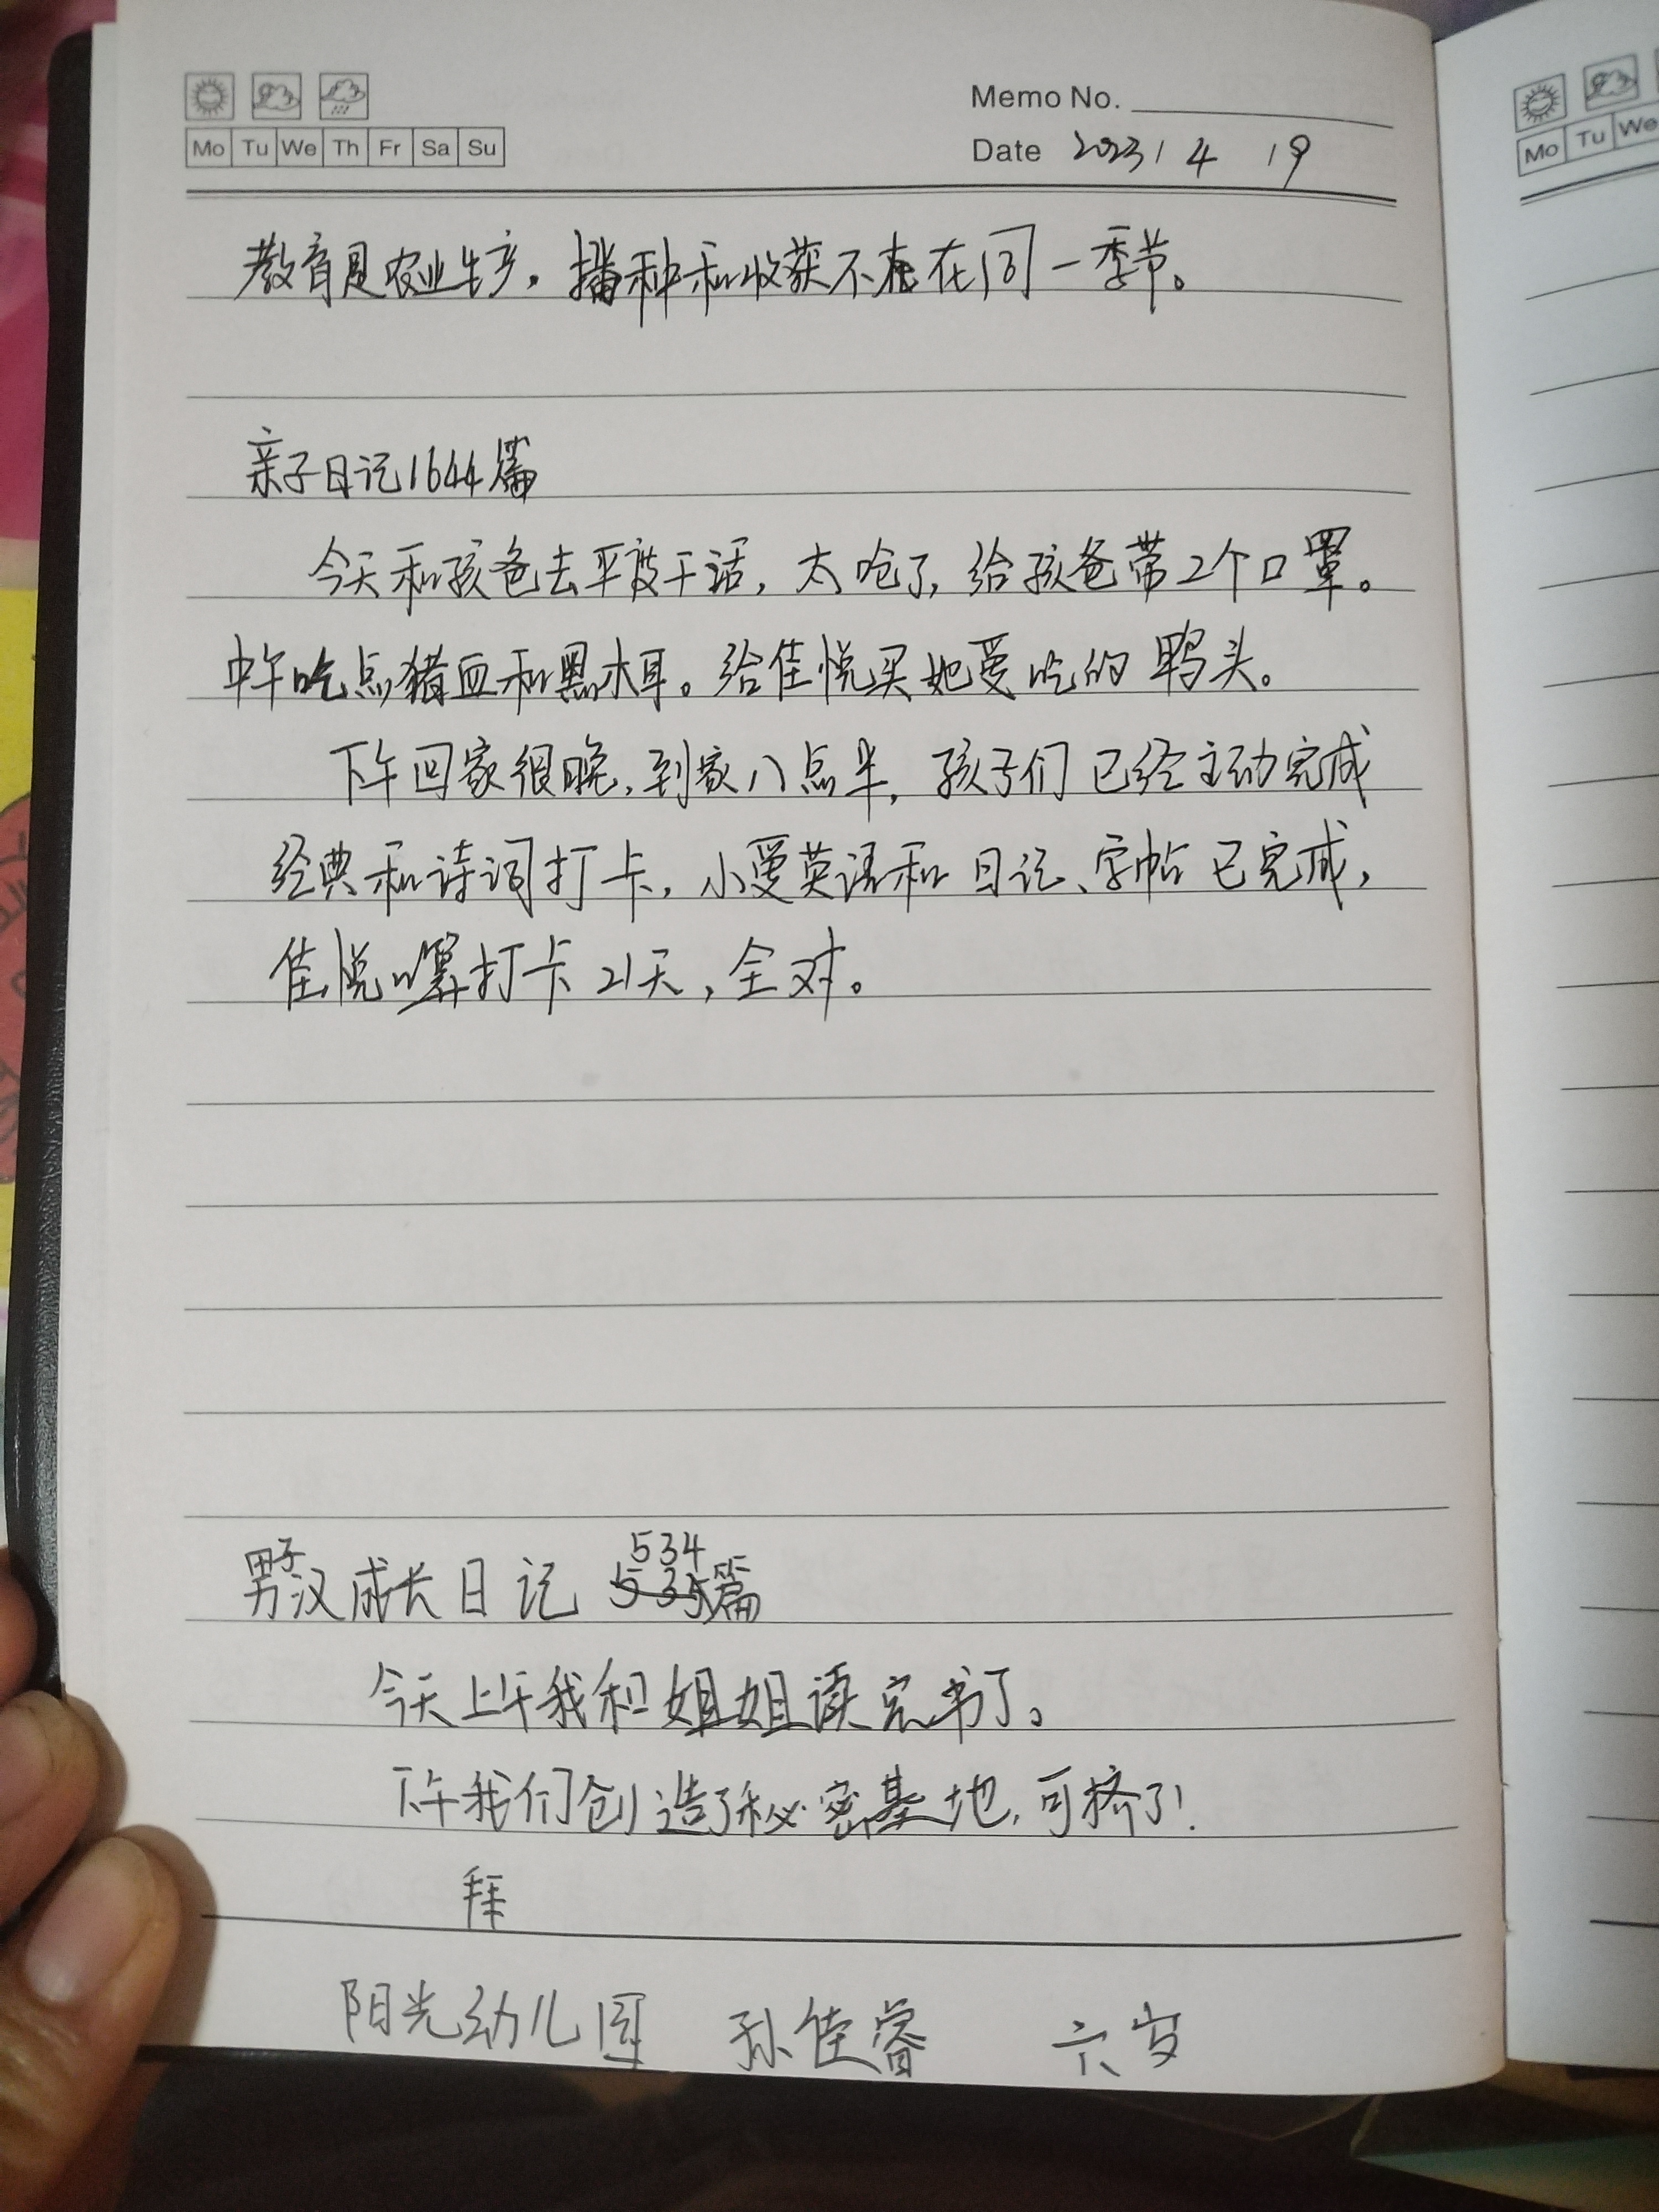 Memo No.
Mo Tu We Th Fr Sa Su
Date 2023 / 4 19
教育是农业生产,播种和收获不在同一季节。
亲子日记1644篇
今天和孩爸去平度干活,太呛了,给孩爸带2个口罩。
中午吃点猪血和黑木耳。给佳悦买她爱吃的鸭头。
下午回家很晚,到家八点半,孩子们已经主动完成
经典和诗词打卡,小爱英语和日记、字帖已完成,
佳悦口算打卡21天,全对。
男子汉成长日记 534篇
今天上午我和姐姐读完书了。
下午我们创造了秘密基地,可挤了!
阳光幼儿园 孙佳睿 六岁
Mo Tu We